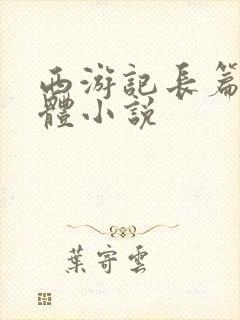 西游記長篇
體小説
葉寄雲